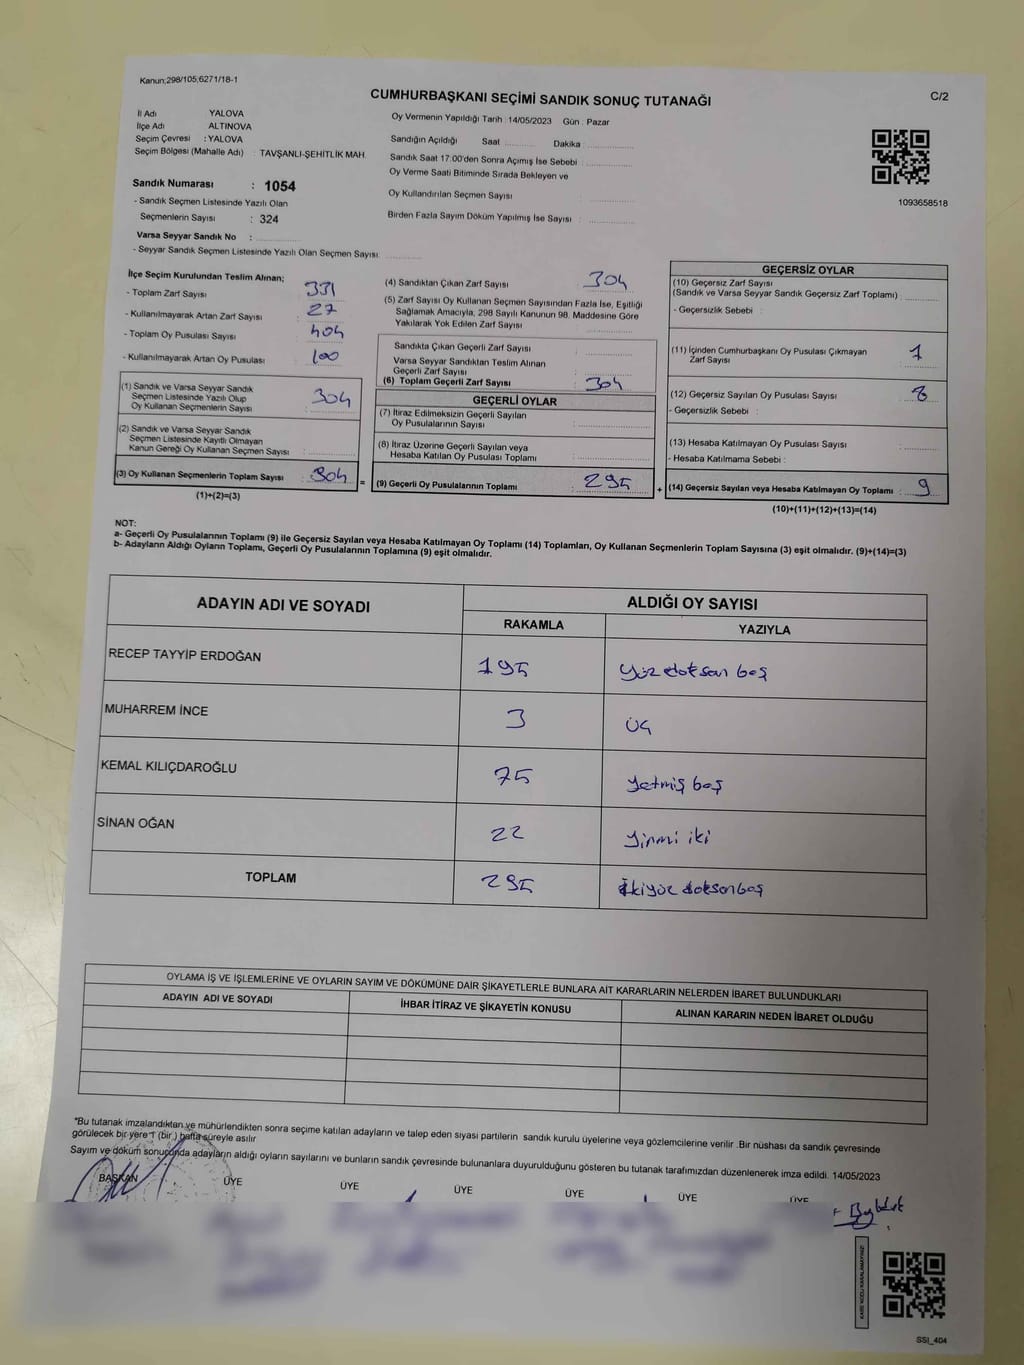 Kanun;298/105;6271/18-1
CUMHURBAŞKANI SEÇİMİ SANDIK SONUÇ TUTANAĞI
C/2
İl Adı YALOVA
İlçe Adı ALTINOVA
Seçim Çevresi : YALOVA
Seçim Bölgesi (Mahalle Adı) : TAVŞANLI-ŞEHİTLİK MAH.
Oy Vermenin Yapıldığı Tarih : 14/05/2023 Gün : Pazar
Sandığın Açıldığı Saat Dakika :
Sandık Saat 17:00'den Sonra Açımış İse Sebebi :
Oy Verme Saati Bitiminde Sırada Bekleyen ve
Oy Kullandırılan Seçmen Sayısı :
Birden Fazla Sayım Döküm Yapılmış İse Sayısı :
1093658518
Sandık Numarası : 1054
- Sandık Seçmen Listesinde Yazılı Olan
Seçmenlerin Sayısı : 324
Varsa Seyyar Sandık No :
- Seyyar Sandık Seçmen Listesinde Yazılı Olan Seçmen Sayısı
İlçe Seçim Kurulundan Teslim Alınan;
- Toplam Zarf Sayısı 331
- Kullanılmayarak Artan Zarf Sayısı : 27
- Toplam Oy Pusulası Sayısı 404
- Kullanılmayarak Artan Oy Pusulası 100
(1) Sandık ve Varsa Seyyar Sandık
Seçmen Listesinde Yazılı Olup
Oy Kullanan Seçmenlerin Sayısı : 304
(2) Sandık ve Varsa Seyyar Sandık
Seçmen Listesinde Kayıtlı Olmayan
Kanun Gereği Oy Kullanan Seçmen Sayısı :
(3) Oy Kullanan Seçmenlerin Toplam Sayısı : 304
(1)+(2)=(3)
=
(4) Sandıktan Çıkan Zarf Sayısı : 304
(5) Zarf Sayısı Oy Kullanan Seçmen Sayısından Fazla İse, Eşitliği
Sağlamak Amacıyla, 298 Sayılı Kanunun 98. Maddesine Göre
Yakılarak Yok Edilen Zarf Sayısı :
Sandıkta Çıkan Geçerli Zarf Sayısı :
Varsa Seyyar Sandıktan Teslim Alınan
Geçerli Zarf Sayısı :
(6) Toplam Geçerli Zarf Sayısı : 304
GEÇERLİ OYLAR
(7) İtiraz Edilmeksizin Geçerli Sayılan
Oy Pusulalarının Sayısı :
(8) İtiraz Üzerine Geçerli Sayılan veya
Hesaba Katılan Oy Pusulası Toplamı :
(9) Geçerli Oy Pusulalarının Toplamı : 295
+
GEÇERSİZ OYLAR
(10) Geçersiz Zarf Sayısı
(Sandık ve Varsa Seyyar Sandık Geçersiz Zarf Toplamı) :
- Geçersizlik Sebebi :
(11) İçinden Cumhurbaşkanı Oy Pusulası Çıkmayan
Zarf Sayısı : 1
(12) Geçersiz Sayılan Oy Pusulası Sayısı : 8
- Geçersizlik Sebebi :
(13) Hesaba Katılmayan Oy Pusulası Sayısı :
- Hesaba Katılmama Sebebi :
(14) Geçersiz Sayılan veya Hesaba Katılmayan Oy Toplamı : 9
(10)+(11)+(12)+(13)=(14)
NOT:
a- Geçerli Oy Pusulalarının Toplamı (9) ile Geçersiz Sayılan veya Hesaba Katılmayan Oy Toplamı (14) Toplamları, Oy Kullanan Seçmenlerin Toplam Sayısına (3) eşit olmalıdır. (9)+(14)=(3)
b- Adayların Aldığı Oyların Toplamı, Geçerli Oy Pusulalarının Toplamına (9) eşit olmalıdır.
ADAYIN ADI VE SOYADI ALDIĞI OY SAYISI
RAKAMLA YAZIYLA
RECEP TAYYİP ERDOĞAN 195 Yüz doksan beş
MUHARREM İNCE 3 Üç
KEMAL KILIÇDAROĞLU 75 Yetmiş beş
SİNAN OĞAN 22 Yirmi iki
TOPLAM 295 İkiyüz doksanbeş
OYLAMA İŞ VE İŞLEMLERİNE VE OYLARIN SAYIM VE DÖKÜMÜNE DAİR ŞİKAYETLERLE BUNLARA AİT KARARLARIN NELERDEN İBARET BULUNDUKLARI
ADAYIN ADI VE SOYADI İHBAR İTİRAZ VE ŞİKAYETİN KONUSU ALINAN KARARIN NEDEN İBARET OLDUĞU
*Bu tutanak imzalandıktan ve mühürlendikten sonra seçime katılan adayların ve talep eden siyasi partilerin sandık kurulu üyelerine veya gözlemcilerine verilir .Bir nüshası da sandık çevresinde
görülecek bir yere 1 (bir ) hafta süreyle asılır
Sayım ve döküm sonucunda adayların aldığı oyların sayılarını ve bunların sandık çevresinde bulunanlara duyurulduğunu gösteren bu tutanak tarafımızdan düzenlenerek imza edildi. 14/05/2023
BAŞKAN ÜYE ÜYE ÜYE ÜYE ÜYE ÜYE
SSI_404